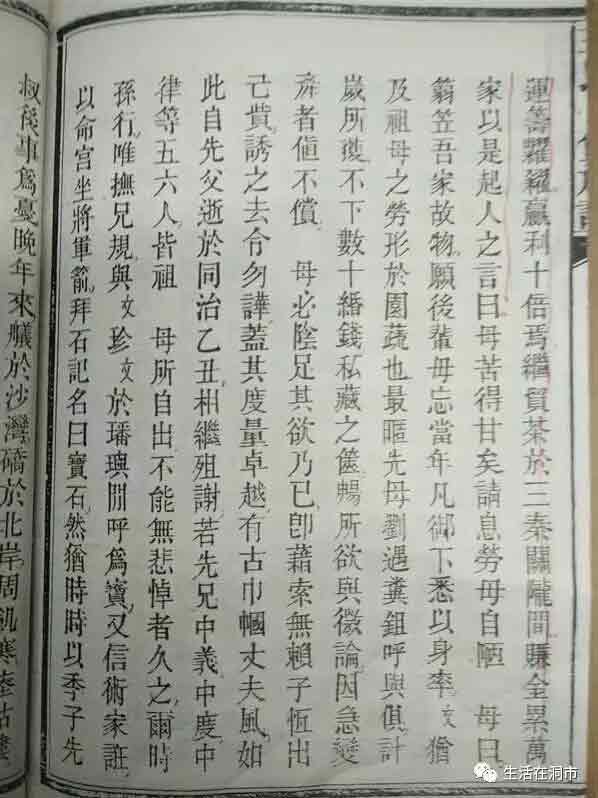 運籌糴糶赢利十倍焉繼貿茶於三秦關隴間賺金累萬
家以是起人之言曰母苦得甘矣請息勞毋自陋 母曰
蓑笠吾家故物願後輩毋忘當年凡御下悉以身率文猶
及祖母之勞形於園蔬也最暱先母劉遇糞鉏呼與俱計
歲所獲不下數十緡錢私藏之篋暢所欲與微論因急變
產者值不償 母必陰足其欲乃已卽藉索無賴子恆出
己貲誘之去令勿譁蓋其度量卓越有古巾幗丈夫風如
此自先父逝於同治乙丑相繼殂謝若先兄中義中度中
律等五六人皆祖 母所自出不能無悲悼者久之爾時
孫行唯撫兄規與文珍文於璠璵閒呼爲寶又信術家誑
以命宮坐將軍箭拜石記名曰寶石然猶時時以季子先
叔後事爲憂晚年來艤於沙灣礄於北岸周飢寒
生活在洞市